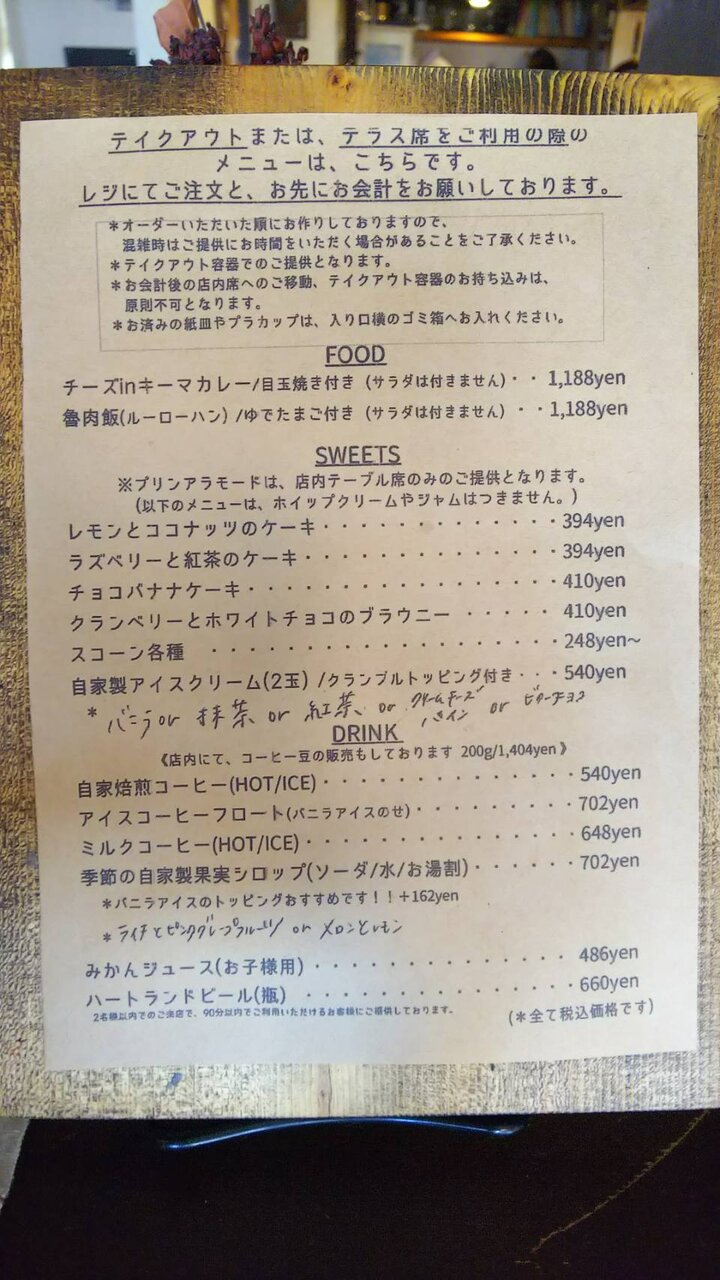 テイクアウトまたは、テラス席をご利用の際の
メニューは、こちらです。
レジにてご注文と、お先にお会計をお願いしております。
＊オーダーいただいた順にお作りしておりますので、
混雑時はご提供にお時間をいただく場合があることをご了承ください。
＊テイクアウト容器でのご提供となります。
＊お会計後の店内席へのご移動、テイクアウト容器のお持ち込みは、
原則不可となります。
＊お済みの紙皿やプラカップは、入り口横のゴミ箱へお入れください。
FOOD
チーズinキーマカレー/目玉焼き付き（サラダは付きません）・・1,188yen
魯肉飯(ルーローハン）/ゆでたまご付き（サラダは付きません）・・1,188yen
SWEETS
※プリンアラモードは、店内テーブル席のみのご提供となります。
（以下のメニューは、ホイップクリームやジャムはつきません。）
レモンとココナッツのケーキ・・・・・・・・・・・・・394yen
ラズベリーと紅茶のケーキ・・・・・・・・・・・・・・394yen
チョコバナナケーキ・・・・・・・・・・・・・・・・・410yen
クランベリーとホワイトチョコのブラウニー ・・・・・410yen
スコーン各種 ・・・・・・・・・・・・・・・・・・248yen～
自家製アイスクリーム(2玉）/クランブルトッピング付き・・・540yen
＊バニラor 抹茶 or 紅茶 or クリームチーズパイン or ビターチョコ
DRINK
《店内にて、コーヒー豆の販売もしております 200g/1,404yen》
自家焙煎コーヒー(HOT/ICE)・・・・・・・・・・・・・540yen
アイスコーヒーフロート(バニラアイスのせ)・・・・・・・・702yen
ミルクコーヒー(HOT/ICE)・・・・・・・・・・・・・・648yen
季節の自家製果実シロップ(ソーダ/水/お湯割)・・・・・・702yen
＊バニラアイスのトッピングおすすめです！！＋162yen
＊ライチとピンクグレープフルーツ or メロンとレモン
みかんジュース(お子様用)・・・・・・・・・・・・・486yen
ハートランドビール(瓶) ・・・・・・・・・・・・・660yen
2名様以内でのご来店で、90分以内でご利用いただけるお客様にご提供しております。
(＊全て税込価格です)